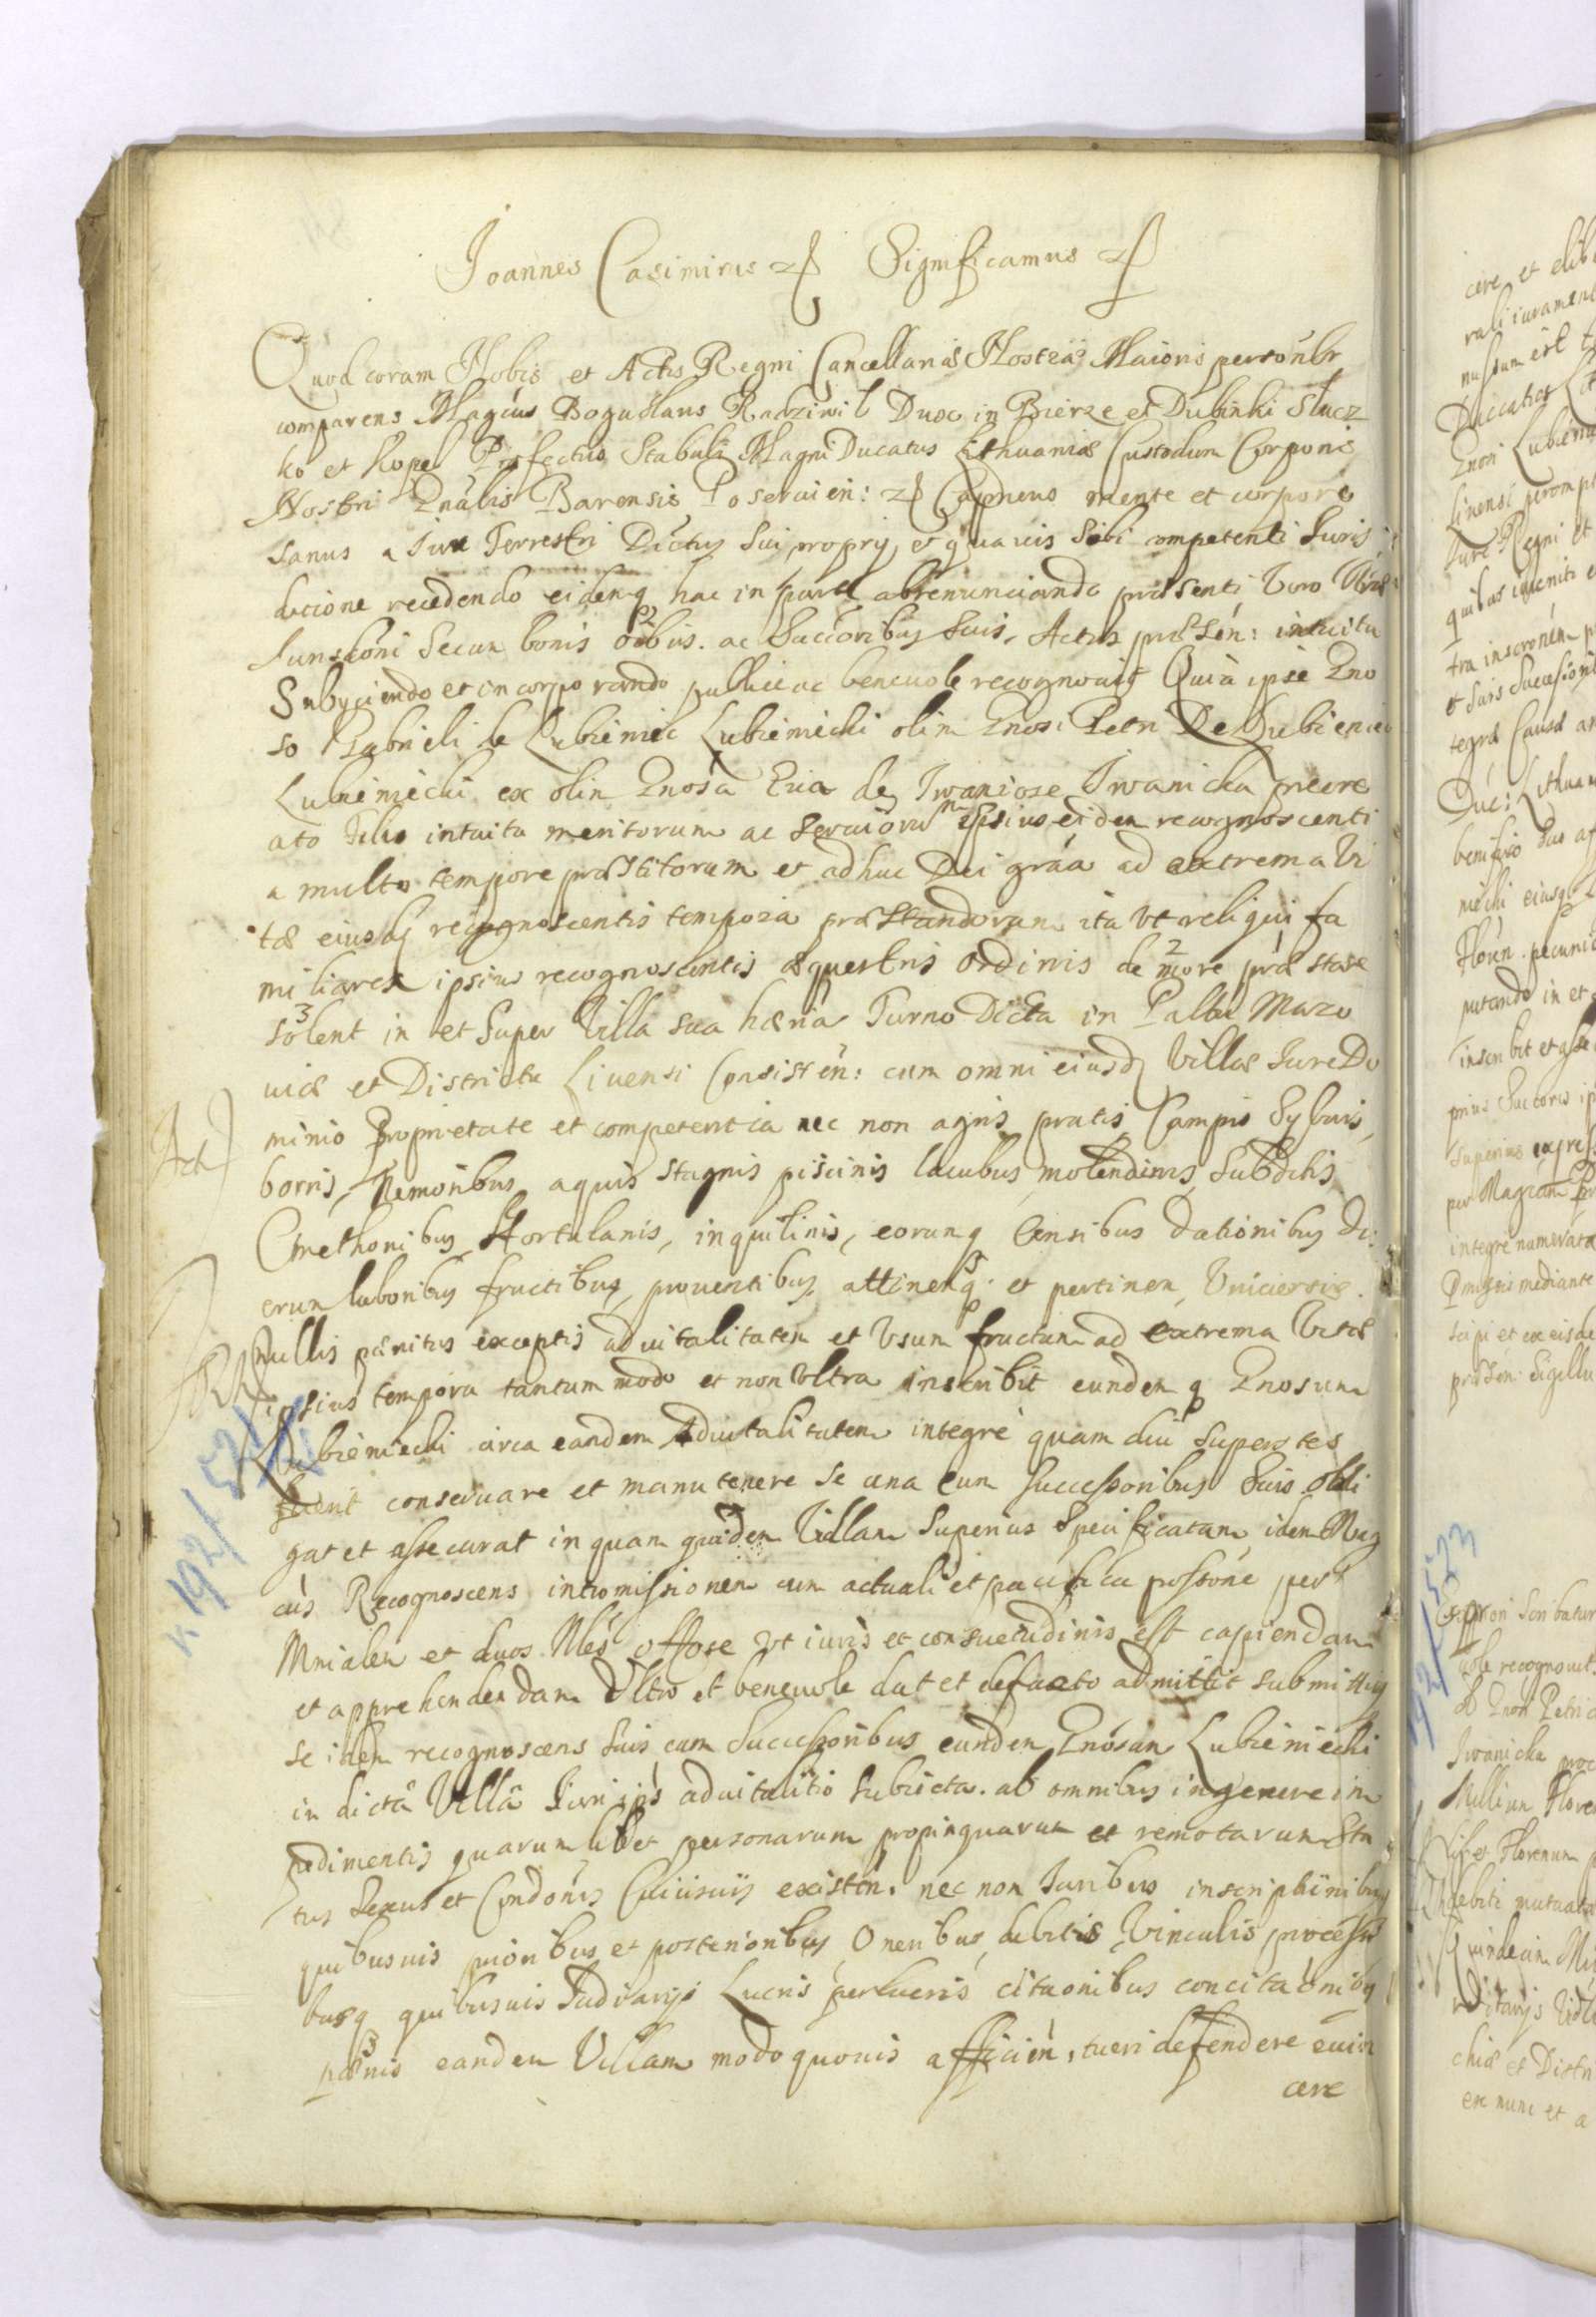 Joannes Casimirus Significamus
Quod coram Nobis et Actis Regni Cancellariæ Nostræ Maioris personlr
comparens Magcus Boguslaus Radziwil Dux in Bierze et Dubinki Slucz
ko et Kopel Præfectus Stabuli Magni Ducatus Lithuaniæ Custodum Corporis
Nostri Gnalis Barensis Poseruien: mente et corpore
sanus a Jure Terrestri Dictus sui proprij, et quauis sibi competenti Juris
dicione recedendo eidemq hac in parte abrenunciando præsenti vero
Jurisdconi Secum bonis oibus ac Succoribus suis, Actis præsen: intuitu
Subyciendo et incorporando publice ac beneuole recognouit Quia ipse Gno
so Gabrieli de Lubieniec Lubieniecki olim Gnosi Petri De Lubieniec
Lubieniecki ex olim Gnosa Eua de Iwanicze Iwanicka procre
ato Filio intuitu meritorum ac seruiorum ipsius eidem recognoscenti
a multo tempore præstitorum et adhuc Dei graa ad extrema vi
tæ eiusdq recognoscentis tempora præstandorum ita vt reliqui fa
miliares ipsius recognoscentis æquestris ordinis de more præstare
solent in et super Villa sua hæria Turno Dicta in Palbu Mazo
uiæ et Districtu Liuensi Consisten: cum omni eiusdq Villæ Jure Do
Act minio Proprietate et competentia nec non agris pratis Campis Syluis,
borris, Nemoribus aquis stagnis piscinis lacubus molendinis Subditis
Cmethonibus Hortulanis, inquilinis, eorumq Censibus Dationibus Di:
erum laboribus fructibus, prouentibus, attinenq. et pertinen, Vniuersis.
nullis pænitus exceptis aduitalitatem et Vsum fructum ad extrema Vitæ
ipsius tempora tantummodo et non Vltra inscribit eundemq Gnosum
Lubieniecki circa eandem Aduitalitatem integre quam diu superstes
fuerit conseruare et manutenere se una cum successoribus suis obli
gat et assecurat in quam quidem Villam superius specificatam idem Mag
cus Recognoscens intromissionem cum actuali et pacifica possone per
Mnialem et duos Nles offose vt iuris et consuetudinis est capiendam
et apprehendendam Vltro et beneuole dat et defacto admittit submittens
se idem recognoscens suis cum successoribus eundem Gnosum Lubieniecki
in dicta Villa Juri ipsi aduitalitio subiecta. ab omnibus ingenere im
pedimentis quarumlibet personarum propinquarum et remotarum Sta
tus sexus et Condonis Cuiusuis existen. nec non Juribus inscriptionibus
quibusuis prioribus et posterioribus Oneribus debitis Vinculis processi
busq quibusuis Judiciarijs Lucris perlucris citaonibus concitaonibq
pænis eandem Villam modo quouis afficien, tueri defendere euin
cere
k 192/521
cere et elibe
rali iuramen
Ducatus
Gnosi Lubienie
Iure Regni et
et suis Successori
tegræ Causæ
Duc: Lithuan
niecki eiusq
Floren. pecuni
putando in et
inscribit et asse
prius Succoris ip
superius expres
integre numerata
præsen: Sigillu
scribatur
beneuole recognouit
Iwanicka proc
192/523